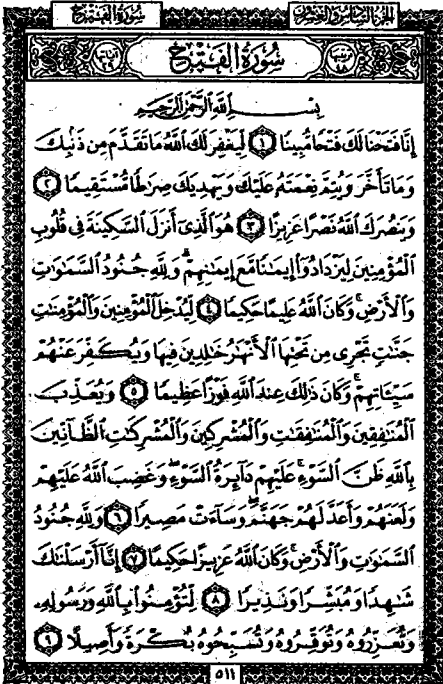 سُورَةُ الفَتْحِ
الجُزْءُ السَّادِسُ وَالعِشْرُونَ
سُورَةُ الفَتْحِ
بِسْمِ اللَّهِ الرَّحْمَٰنِ الرَّحِيمِ
إِنَّا فَتَحْنَا لَكَ فَتْحًا مُّبِينًا ١ لِّيَغْفِرَ لَكَ ٱللَّهُ مَا تَقَدَّمَ مِن ذَنۢبِكَ
وَمَا تَأَخَّرَ وَيُتِمَّ نِعْمَتَهُۥ عَلَيْكَ وَيَهْدِيَكَ صِرَٰطًا مُّسْتَقِيمًا ٢
وَيَنصُرَكَ ٱللَّهُ نَصْرًا عَزِيزًا ٣ هُوَ ٱلَّذِىٓ أَنزَلَ ٱلسَّكِينَةَ فِى قُلُوبِ
ٱلْمُؤْمِنِينَ لِيَزْدَادُوٓا۟ إِيمَٰنًا مَّعَ إِيمَٰنِهِمْ ۗ وَلِلَّهِ جُنُودُ ٱلسَّمَٰوَٰتِ
وَٱلْأَرْضِ ۚ وَكَانَ ٱللَّهُ عَلِيمًا حَكِيمًا ٤ لِّيُدْخِلَ ٱلْمُؤْمِنِينَ وَٱلْمُؤْمِنَٰتِ
جَنَّٰتٍ تَجْرِى مِن تَحْتِهَا ٱلْأَنْهَٰرُ خَٰلِدِينَ فِيهَا وَيُكَفِّرَ عَنْهُمْ
سَيِّـَٔاتِهِمْ ۚ وَكَانَ ذَٰلِكَ عِندَ ٱللَّهِ فَوْزًا عَظِيمًا ٥ وَيُعَذِّبَ
ٱلْمُنَٰفِقِينَ وَٱلْمُنَٰفِقَٰتِ وَٱلْمُشْرِكِينَ وَٱلْمُشْرِكَٰتِ ٱلظَّآنِّينَ
بِٱللَّهِ ظَنَّ ٱلسَّوْءِ ۚ عَلَيْهِمْ دَآئِرَةُ ٱلسَّوْءِ ۖ وَغَضِبَ ٱللَّهُ عَلَيْهِمْ
وَلَعَنَهُمْ وَأَعَدَّ لَهُمْ جَهَنَّمَ ۖ وَسَآءَتْ مَصِيرًا ٦ وَلِلَّهِ جُنُودُ
ٱلسَّمَٰوَٰتِ وَٱلْأَرْضِ ۚ وَكَانَ ٱللَّهُ عَزِيزًا حَكِيمًا ٧ إِنَّآ أَرْسَلْنَٰكَ
شَٰهِدًا وَمُبَشِّرًا وَنَذِيرًا ٨ لِّتُؤْمِنُوا۟ بِٱللَّهِ وَرَسُولِهِۦ
وَتُعَزِّرُوهُ وَتُوَقِّرُوهُ وَتُسَبِّحُوهُ بُكْرَةً وَأَصِيلًا ٩
٥١١